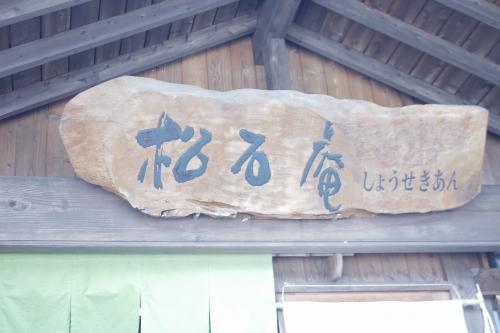 松石庵 しょうせきあん